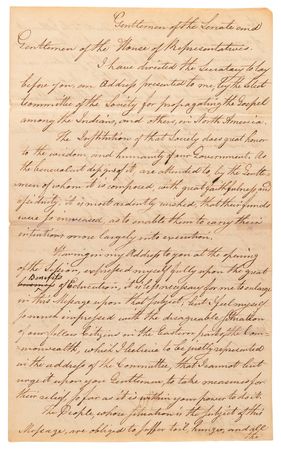 Gentlemen of the Senate and
Gentlemen of the House of Representatives.
I have directed the Secretary to lay
before you, an Address presented to me, by the select
Committee of the Society for propagating the Gospel
among the Indians, and others, in North America.
The Institution of that Society does great honor
to the wisdom, and humanity of our Government. As
the benevolent designs of it, are attended to, by the Gentle-
men of whom it is composed, with great faithfulness and
assiduity, it is most ardently wished, that their funds
were so increased, as to enable them to carry their
intentions more largely into execution.
Having in my Address to you at the opening
of the Session, expressed myself fully upon the great
Benefits
of Education, it is unnecessary for me to enlarge
in this Message upon that subject, but I feel myself
so much impressed with the disagreeable situation
of our fellow Citizens in the Eastern parts of the Com-
monwealth, which I believe to be justly represented
in the address of the Committee, that I cannot but
urge it upon you Gentlemen, to take measures for
their relief, so far as it is within your power to do it.
The People, whose situation is the subject of this
Message, are obliged to suffer toil, hunger, and all
the